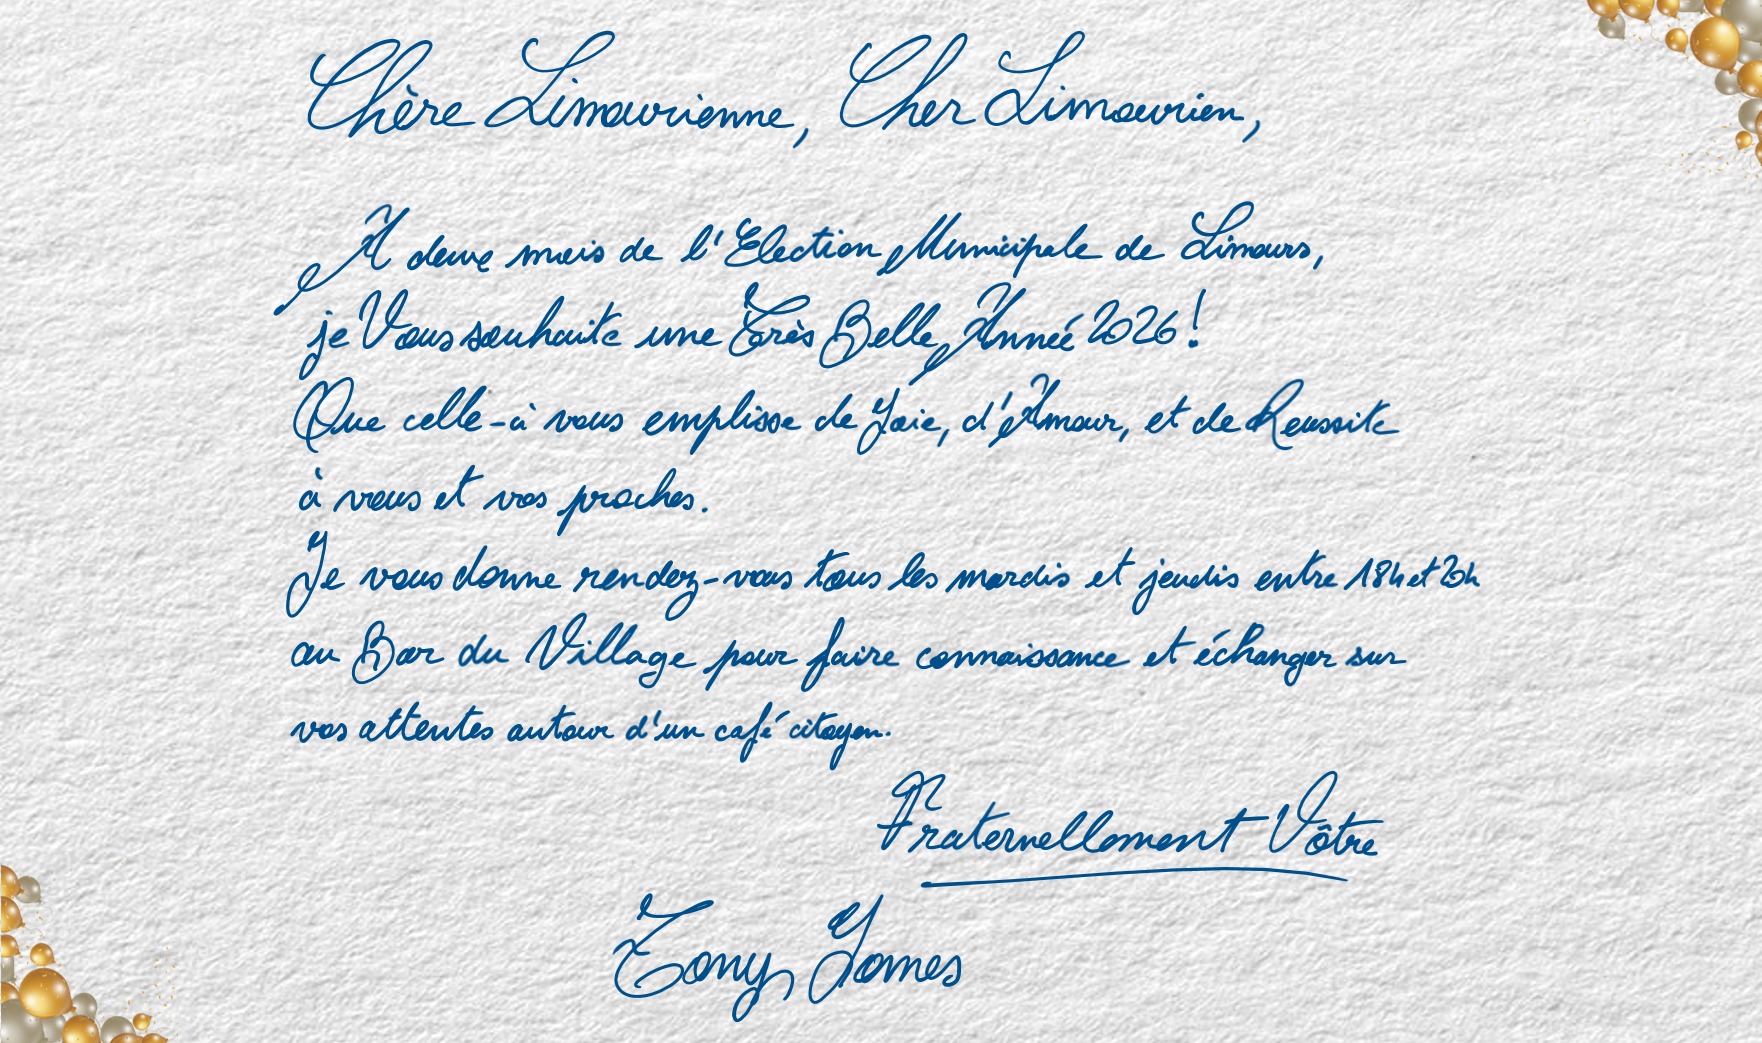 Chère Limourienne, Cher Limourien,
A deux mois de l'Election Municipale de Limours,
je Vous souhaite une Très Belle Année 2026!
Que celle-à vous emplisse de Joie, d'Amour, et de Reussite
à vous et vos proches.
Je vous donne rendez-vous tous les mardis et jeudis entre 18h et 20h
au Bar du Village pour faire connaissance et échanger sur
vos attentes autour d'un café citoyen.
Fraternellement Vôtre
Tony James